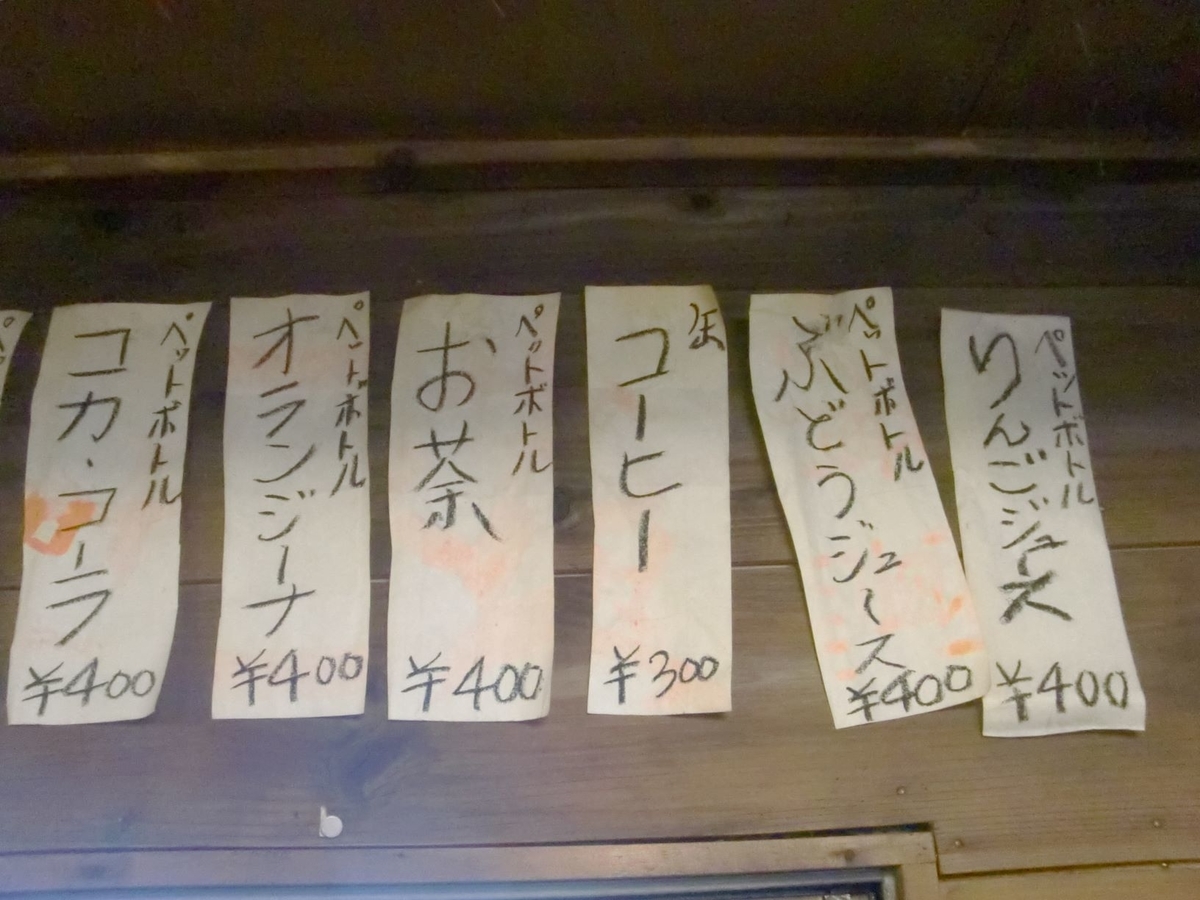 ペットボトル
りんごジュース
¥400
ペットボトル
ぶどうジュース
¥400
缶
コーヒー
¥300
ペットボトル
お茶
¥400
ペットボトル
オランジーナ
¥400
ペットボトル
コカ・コーラ
¥400